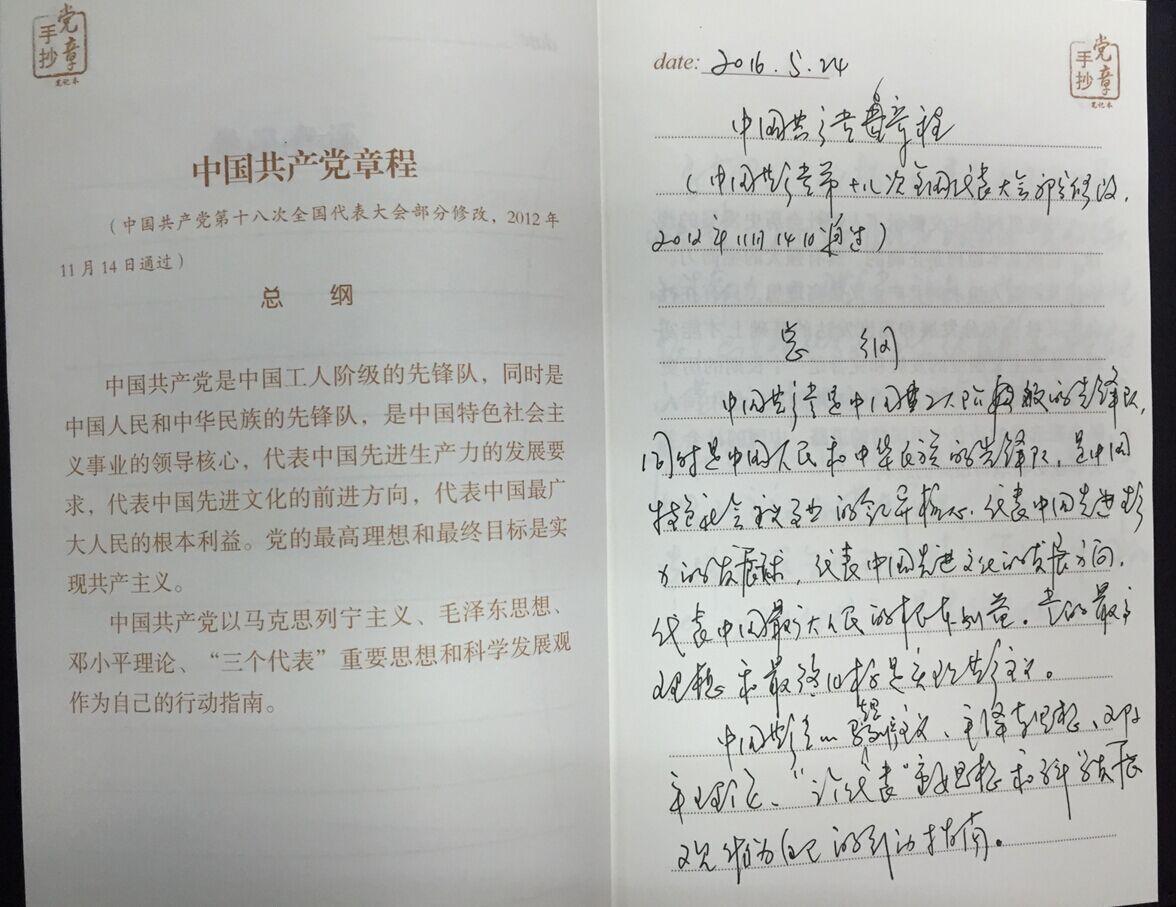 手抄
党章
笔记本
中国共产党章程
（中国共产党第十八次全国代表大会部分修改，2012 年
11 月 14 日通过）
总 纲
中国共产党是中国工人阶级的先锋队，同时是
中国人民和中华民族的先锋队，是中国特色社会主
义事业的领导核心，代表中国先进生产力的发展要
求，代表中国先进文化的前进方向，代表中国最广
大人民的根本利益。党的最高理想和最终目标是实
现共产主义。
中国共产党以马克思列宁主义、毛泽东思想、
邓小平理论、“三个代表”重要思想和科学发展观
作为自己的行动指南。
手抄
党章
笔记本
date: 2016.5.24
中国共产党章程
（中国共产党第十八次全国代表大会部分修改，
2012年11月14日通过）
总 纲
中国共产党是中国工人阶级的先锋队，
同时是中国人民和中华民族的先锋队，是中国
特色社会主义事业的领导核心，代表中国先进生产
力的发展要求，代表中国先进文化的发展方向，
代表中国最广大人民的根本利益。党的最高
理想和最终目标是实现共产主义。
中国共产党以马克思列宁主义、毛泽东思想、邓小
平理论、“三个代表”重要思想和科学发展
观作为自己的行动指南。